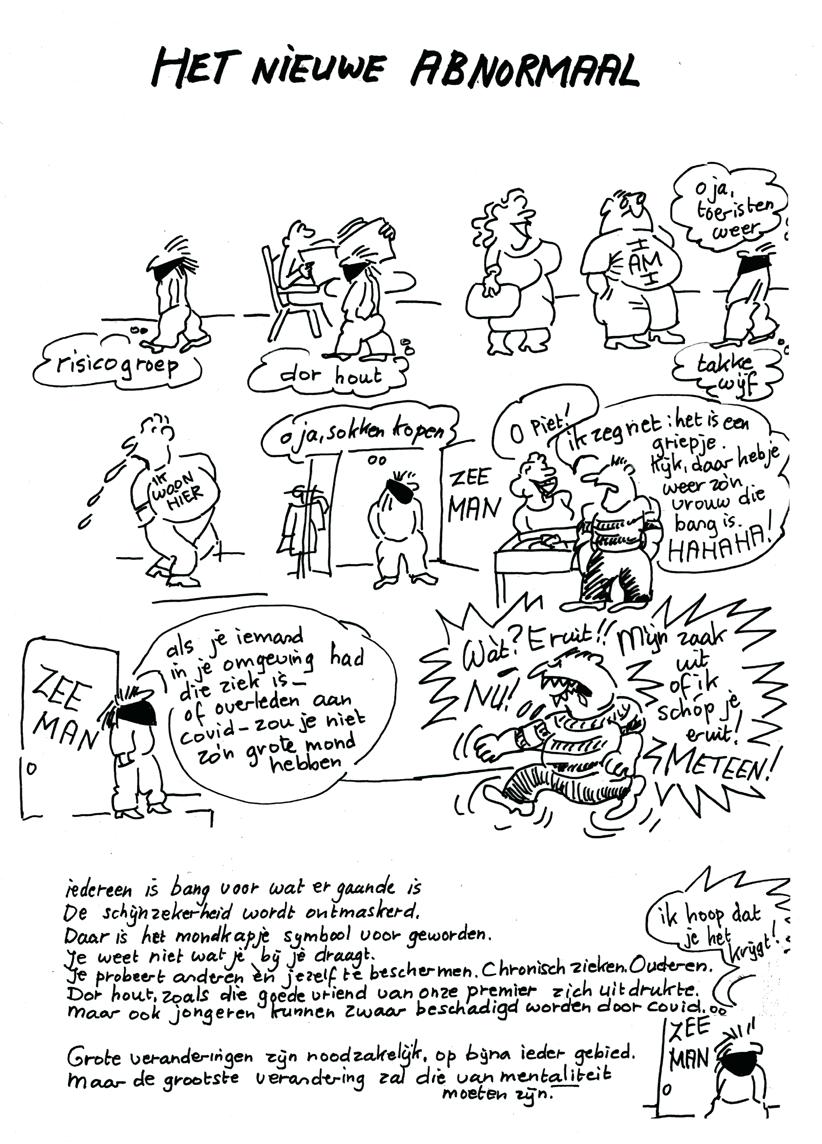 HET NIEUWE ABNORMAAL
risicogroep
dor hout
I
AM
I
o ja,
toeristen
weer
takke
wijf
IK
WOON
HIER
o ja, sokken kopen
ZEE
MAN
O Piet!
ik zeg net: het is een
griepje.
Kijk, daar heb je
weer zo'n
vrouw die
bang is.
HAHAHA!
ZEE
MAN
als je iemand
in je omgeving had
die ziek is –
of overleden aan
covid – zou je niet
zo'n grote mond
hebben
Wàt? Eruit!!
NU!
Mijn zaak
uit
of ik
schop je
eruit!
METEEN!
iedereen is bang voor wat er gaande is
De schijnzekerheid wordt ontmaskerd.
Daar is het mondkapje symbool voor geworden.
Je weet niet wat je bij je draagt.
Je probeert anderen èn jezelf te beschermen. Chronisch zieken. Ouderen.
Dor hout, zoals die goede vriend van onze premier zich uitdrukte.
Maar ook jongeren kunnen zwaar beschadigd worden door covid.
ik hoop dat
je het
krijgt!
ZEE
MAN
Grote veranderingen zijn noodzakelijk, op bijna ieder gebied.
Maar de grootste verandering zal die van mentaliteit
moeten zijn.